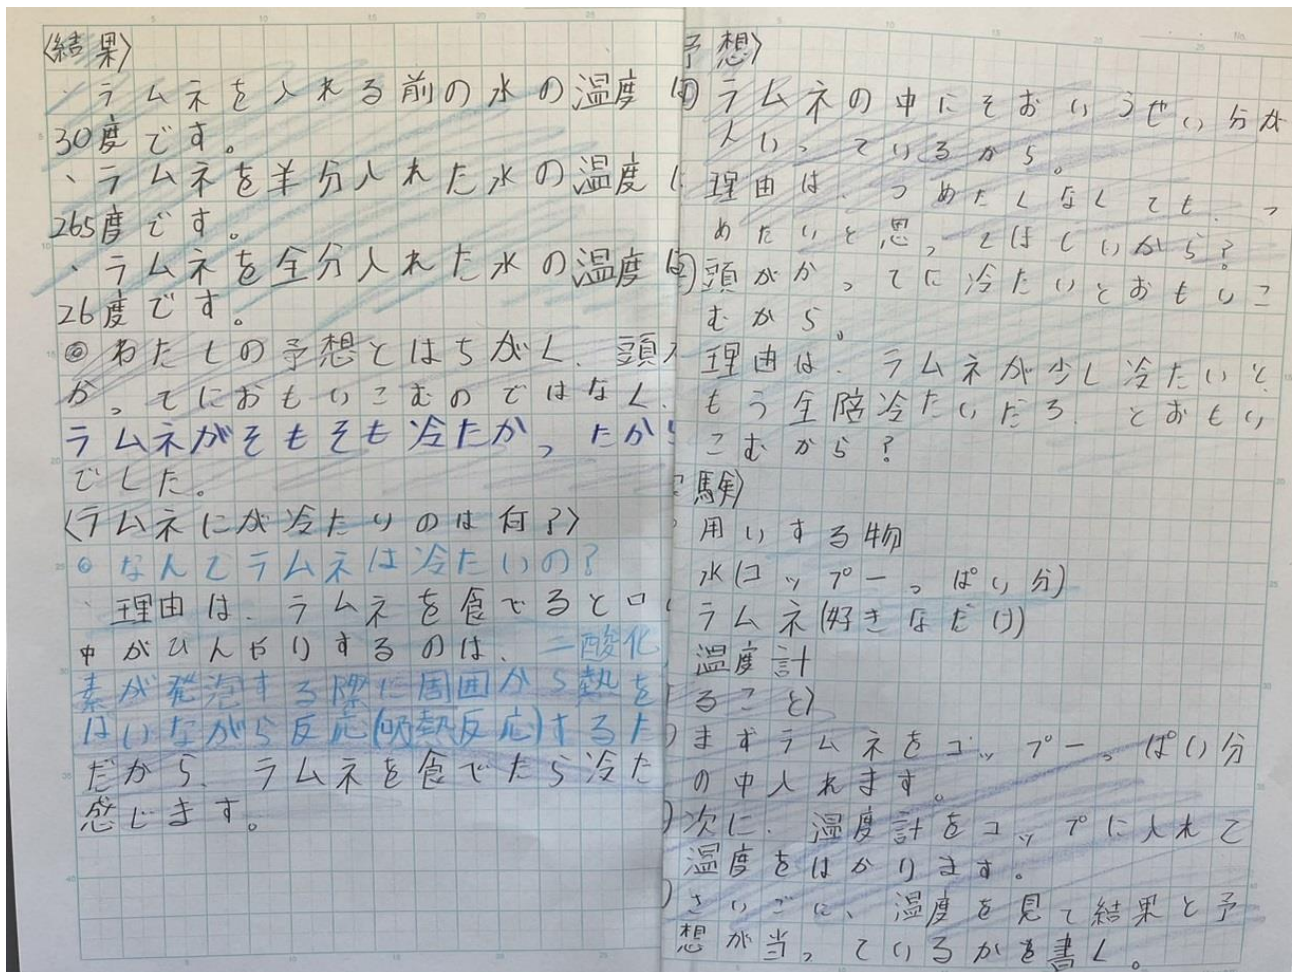 〈結果〉
・ラムネを入れる前の水の温度は
30度です。
、ラムネを半分入れた水の温度
265度です。
、ラムネを全分入れた水の温度は
26度です。
◎わたしの予想とはちがく、頭
かってにおもいこむのではなく、
ラムネがそもそも冷たかったから
でした。
〈ラムネにが冷たいのは何?〉
◎なんでラムネは冷たいの?
、理由は、ラムネを食べると口
中がひんやりするのは、二酸化
素が発泡する際に周囲から熱を
ばいながら反応(吸熱反応)するた
だから、ラムネを食べたら冷た
感じます。
予想〉
ラムネの中にそおいうせい分が
入いっているから。
理由は、つめたくなくても、つ
めたいと思ってほしいから?
頭がかってに冷たいとおもいこ
むから。
理由は、ラムネが少し冷たいと
もう全陪冷たいだろ、とおもい
こむから?
験〉
用いする物
水(コップ一っぱい分)
ラムネ(好きなだけ)
温度計
ること〉
まずラムネをコップ一っぱい分
の中入れます。
次に、温度計をコップに入れて
温度をはかります。
さいごに、温度を見て結果と予
想が当っているかを書く。